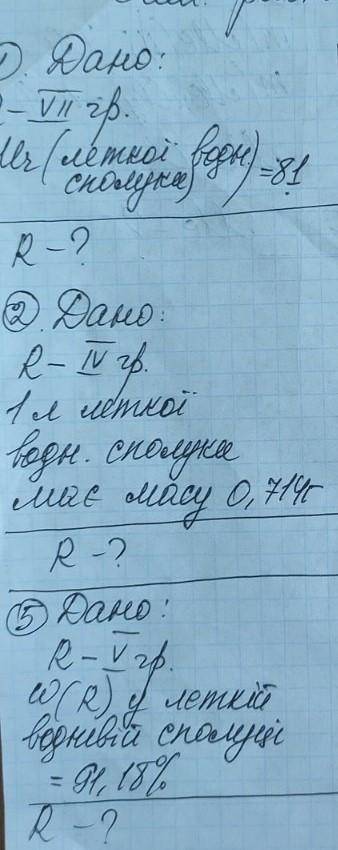 1) Дано:
R – VII гр.
Mr (леткої водн.
сполуки) = 81
R – ?
2. Дано:
R – IV гр.
1 л леткої
водн. сполуки
має масу 0,714г
R – ?
5 Дано:
R – V гр.
ω(R) у леткій
водневій сполуці
= 91,18%
R – ?